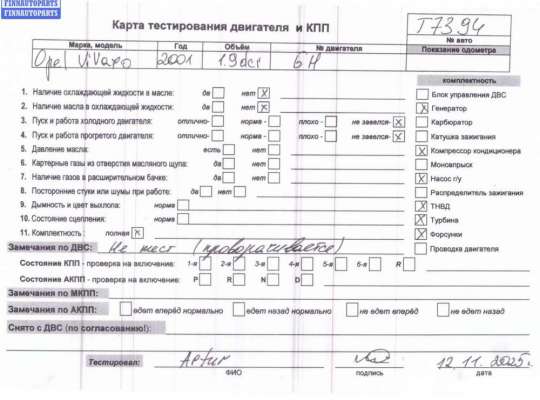 FINNAUTOPARTS
FINNAUTOPARTS
Карта тестирования двигателя и КПП
T7394
№ авто
Марка, модель Год Объём № двигателя Показание одометра
Opel Vivaro 2001 1.9dci 6H
комплектность
1. Наличие охлаждающей жидкости в масле: да нет X
Блок управления ДВС
2. Наличие масла в охлаждающей жидкости: да нет X
X Генератор
3. Пуск и работа холодного двигателя: отлично- норма - плохо - не завелся- X
Карбюратор
4. Пуск и работа прогретого двигателя: отлично- норма - плохо - не завелся- X
X Катушка зажигания
5. Давление масла: есть нет
X Компрессор кондиционера
6. Картерные газы из отверстия масляного щупа: да нет
Моновпрыск
7. Наличие газов в расширительном бачке: да нет
X Насос г/у
8. Посторонние стуки или шумы при работе: да нет
Распределитель зажигания
9. Дымность и цвет выхлопа: норма
X ТНВД
10. Состояние сцепления: норма
X Турбина
11. Комплектность : полная X
X Форсунки
Замечания по ДВС: Не тест (проворачивается)
Проводка двигателя
Состояние КПП - проверка на включение: 1-я 2-я 3-я 4-я 5-я 6-я R
Состояние АКПП - проверка на включение: P R N D
Замечания по МКПП:
Замечания по АКПП: едет вперёд нормально едет назад нормально не едет вперёд не едет назад
Снято с ДВС (по согласованию!):
Тестировал: Артур 12.11.2025г.
ФИО подпись дата